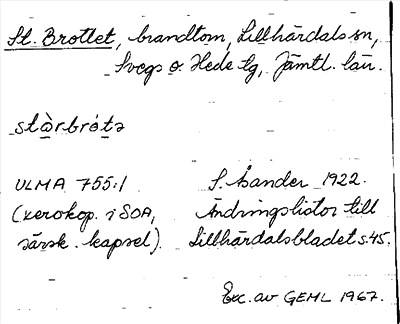 St. Brottet, brandtom, Lillhärdals sn,
Svegs o. Hede tg, Jämtl. län.
stòrbrótə
ULMA 755:1 S. Åsander 1922.
(xerokop. i SOA, Ändringslistor till
särsk. kapsel). Lillhärdalsbladet s. 45.
Exc. av GEML 1967.